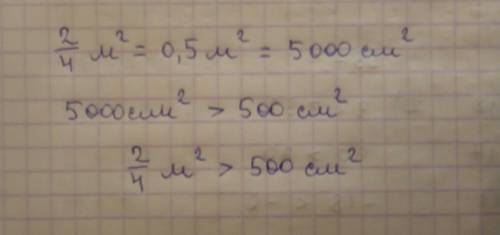 2/4 м² = 0,5 м² = 5000 см²
5000 см² > 500 см²
2/4 м² > 500 см²